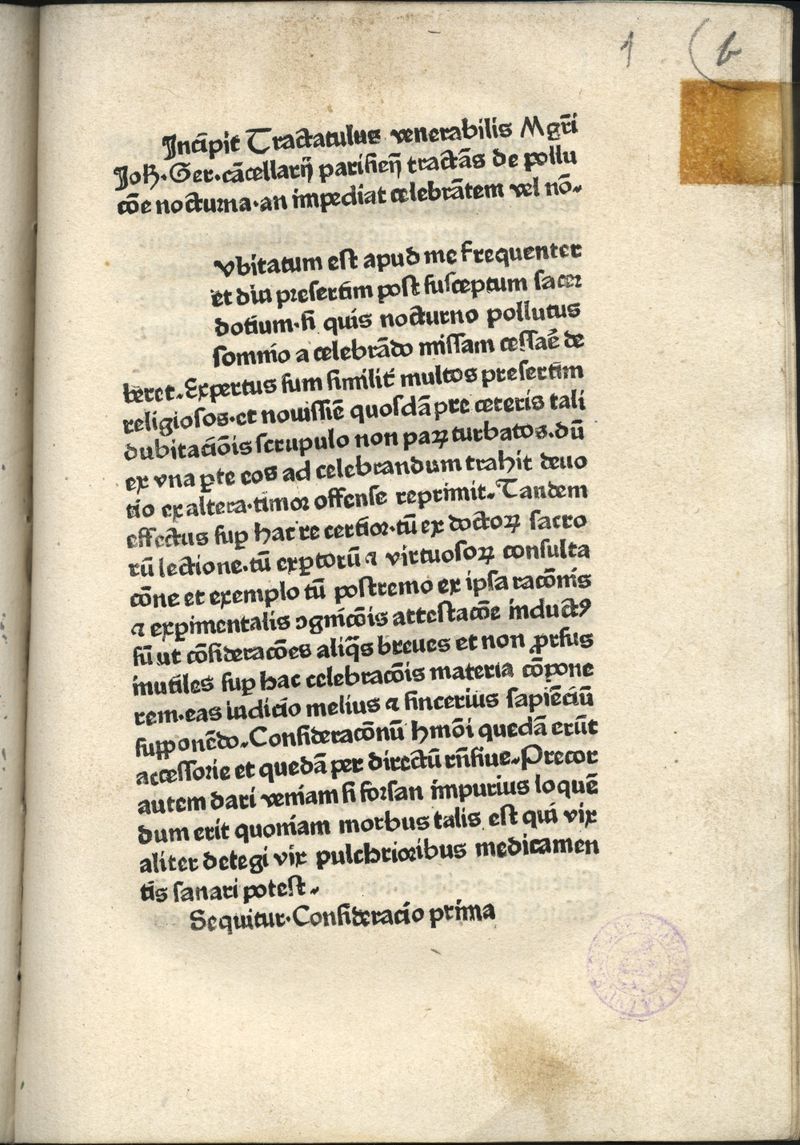 1 6
Incipit Tractatulus venerabilis Mgr̄i
Joh̄. Ger. cācellarij parisieñ tractās de pollu
cōe nocturna. an impediat celebrātem vel nō.
vbitatum est apud me frequenter
et diu presertim post susceptum sacer
dotium. si quis nocturno pollutus
somnio a celebrādo missam cessaē de
beret. Expertus sum similit̄ multos presertim
religiosos. et nouissīe quosdā pre ceteris tali
dubitaciōis scrupulo non paꝝ turbatos. dū
ex vna ꝑte eos ad celebrandum trahit deuo
tio ex altera. timor offense reprimit. Tandem
effectus suꝑ hac re certior. tū ex doctoꝝ sacro
rū lectione. tū exꝑtorū ⁊ virtuosoꝝ consulta
cōne et exemplo tū postremo ex ipsa racōnis
⁊ exꝑimentalis ꝯgnicōis attestacōe inductꝰ
sū ut cōsideracōes aliq̄s breues et non ꝓrsus
inutiles suꝑ hac celebracōis materia cōpone
rem. eas iudicio melius ⁊ sincerius sapiēciū
supponēdo. Consideracōnū hmōi quedā erūt
accessorie et quedā per directū rn̄siue. Precor
autem dari veniam si forsan impurius loquē
dum erit quoniam morbus talis est qui vix
aliter detegi vix pulchrioribus medicamen
tis sanari potest.
Sequitur. Consideracio prima